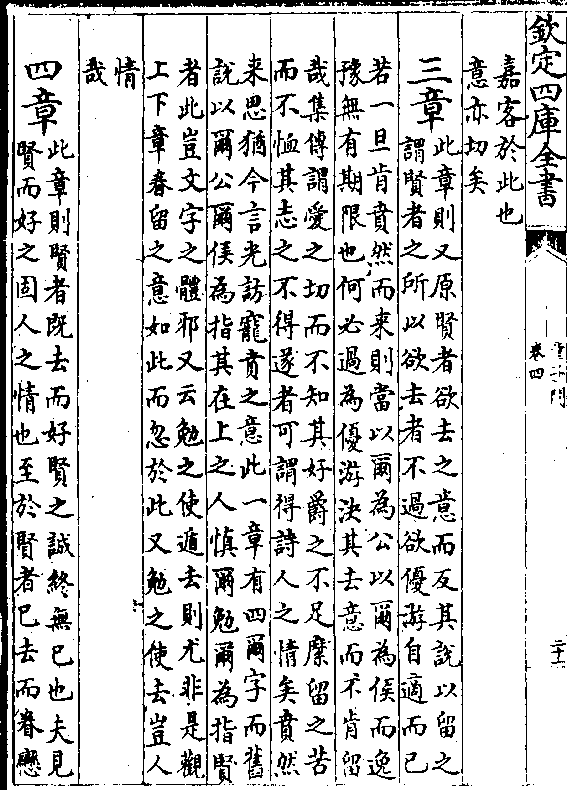 欽定四庫全書
童子問
卷四
二十二
嘉客於此也
意亦切矣
三章
此章則又原賢者欲去之意而反其說以留之
謂賢者之所以欲去者不過欲優游自適而已
若一旦肯賁然而来則當以爾為公以爾為侯而逸
豫無有期限也何必過為優游決其去意而不肯留
哉集傳謂愛之切而不知其好爵之不足縻留之苦
而不恤其志之不得遂者可謂得詩人之情矣賁然
来思猶今言光訪寵賁之意此一章有四爾字而舊
說以爾公爾侯為指其在上之人慎爾勉爾為指賢
者此豈文字之體邪又云勉之使遁去則尤非是觀
上下章眷留之意如此而忽於此又勉之使去豈人
情
哉
四章
此章則賢者既去而好賢之誠終無已也夫見
賢而好之固人之情也至於賢者已去而眷戀